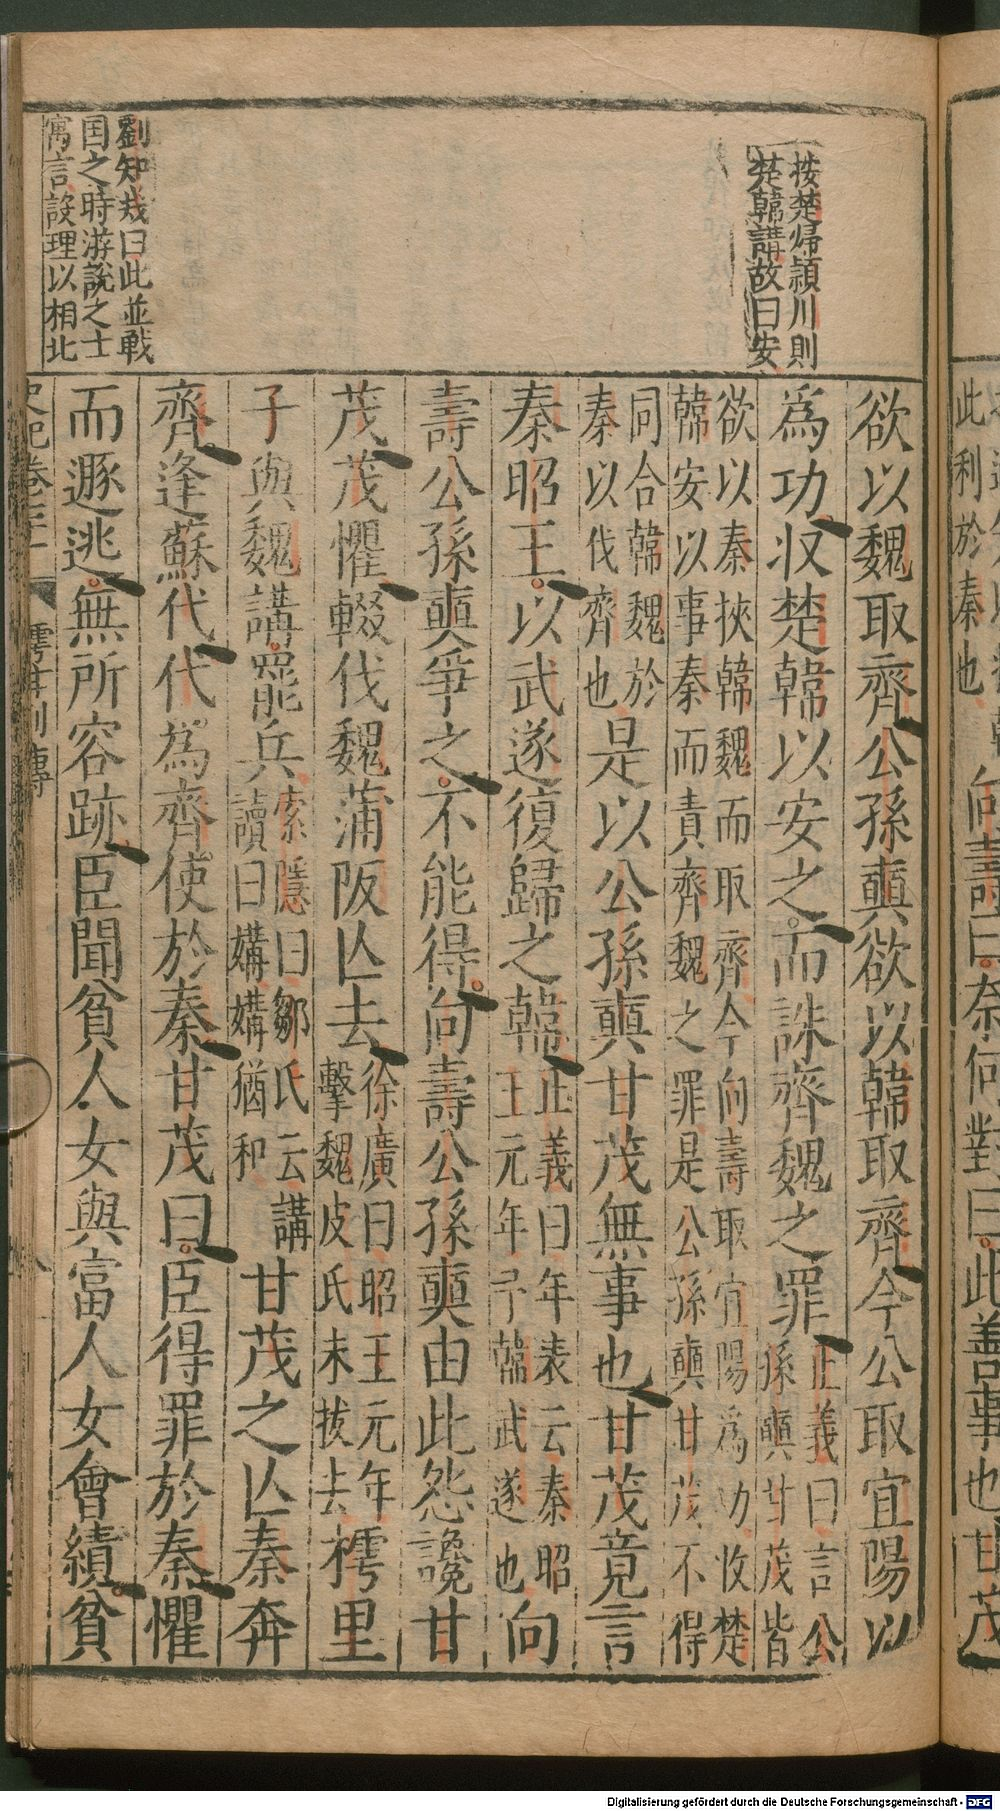 按楚歸潁川則
楚韓講故曰安
劉知㡬曰此並戰
囯之時游說之士
寓言設理以相比
欲以魏取齊公孫奭欲以韓取齊今公取宜陽以
爲功收楚韓以安之而誅齊魏之罪
正義曰言公
孫奭甘茂皆
欲以秦挾韓魏而取齊今向壽取宜陽爲功收楚
韓安以事秦而責齊魏之罪是公孫奭甘茂不得
同合韓魏於
秦以伐齊也
是以公孫奭甘茂無事也甘茂竟言
秦昭王以武遂復歸之韓
正義曰年表云秦昭
王元年予韓武遂也
向
壽公孫奭爭之不能得向壽公孫奭由此怨讒甘
茂茂懼輟伐魏蒲阪亾去
徐廣曰昭王元年
擊魏皮氏未拔去
樗里
子與魏講罷兵
索隱曰鄒氏云講
讀曰媾媾猶和
甘茂之亾秦奔
齊逢蘇代代爲齊使於秦甘茂曰臣得罪於秦懼
而遯逃無所容跡臣聞貧人女與富人女會績貧
此利於秦也
向壽曰奈何對曰此善事也甘茂
Digitalisierung gefördert durch die Deutsche Forschungsgemeinschaft - DFG